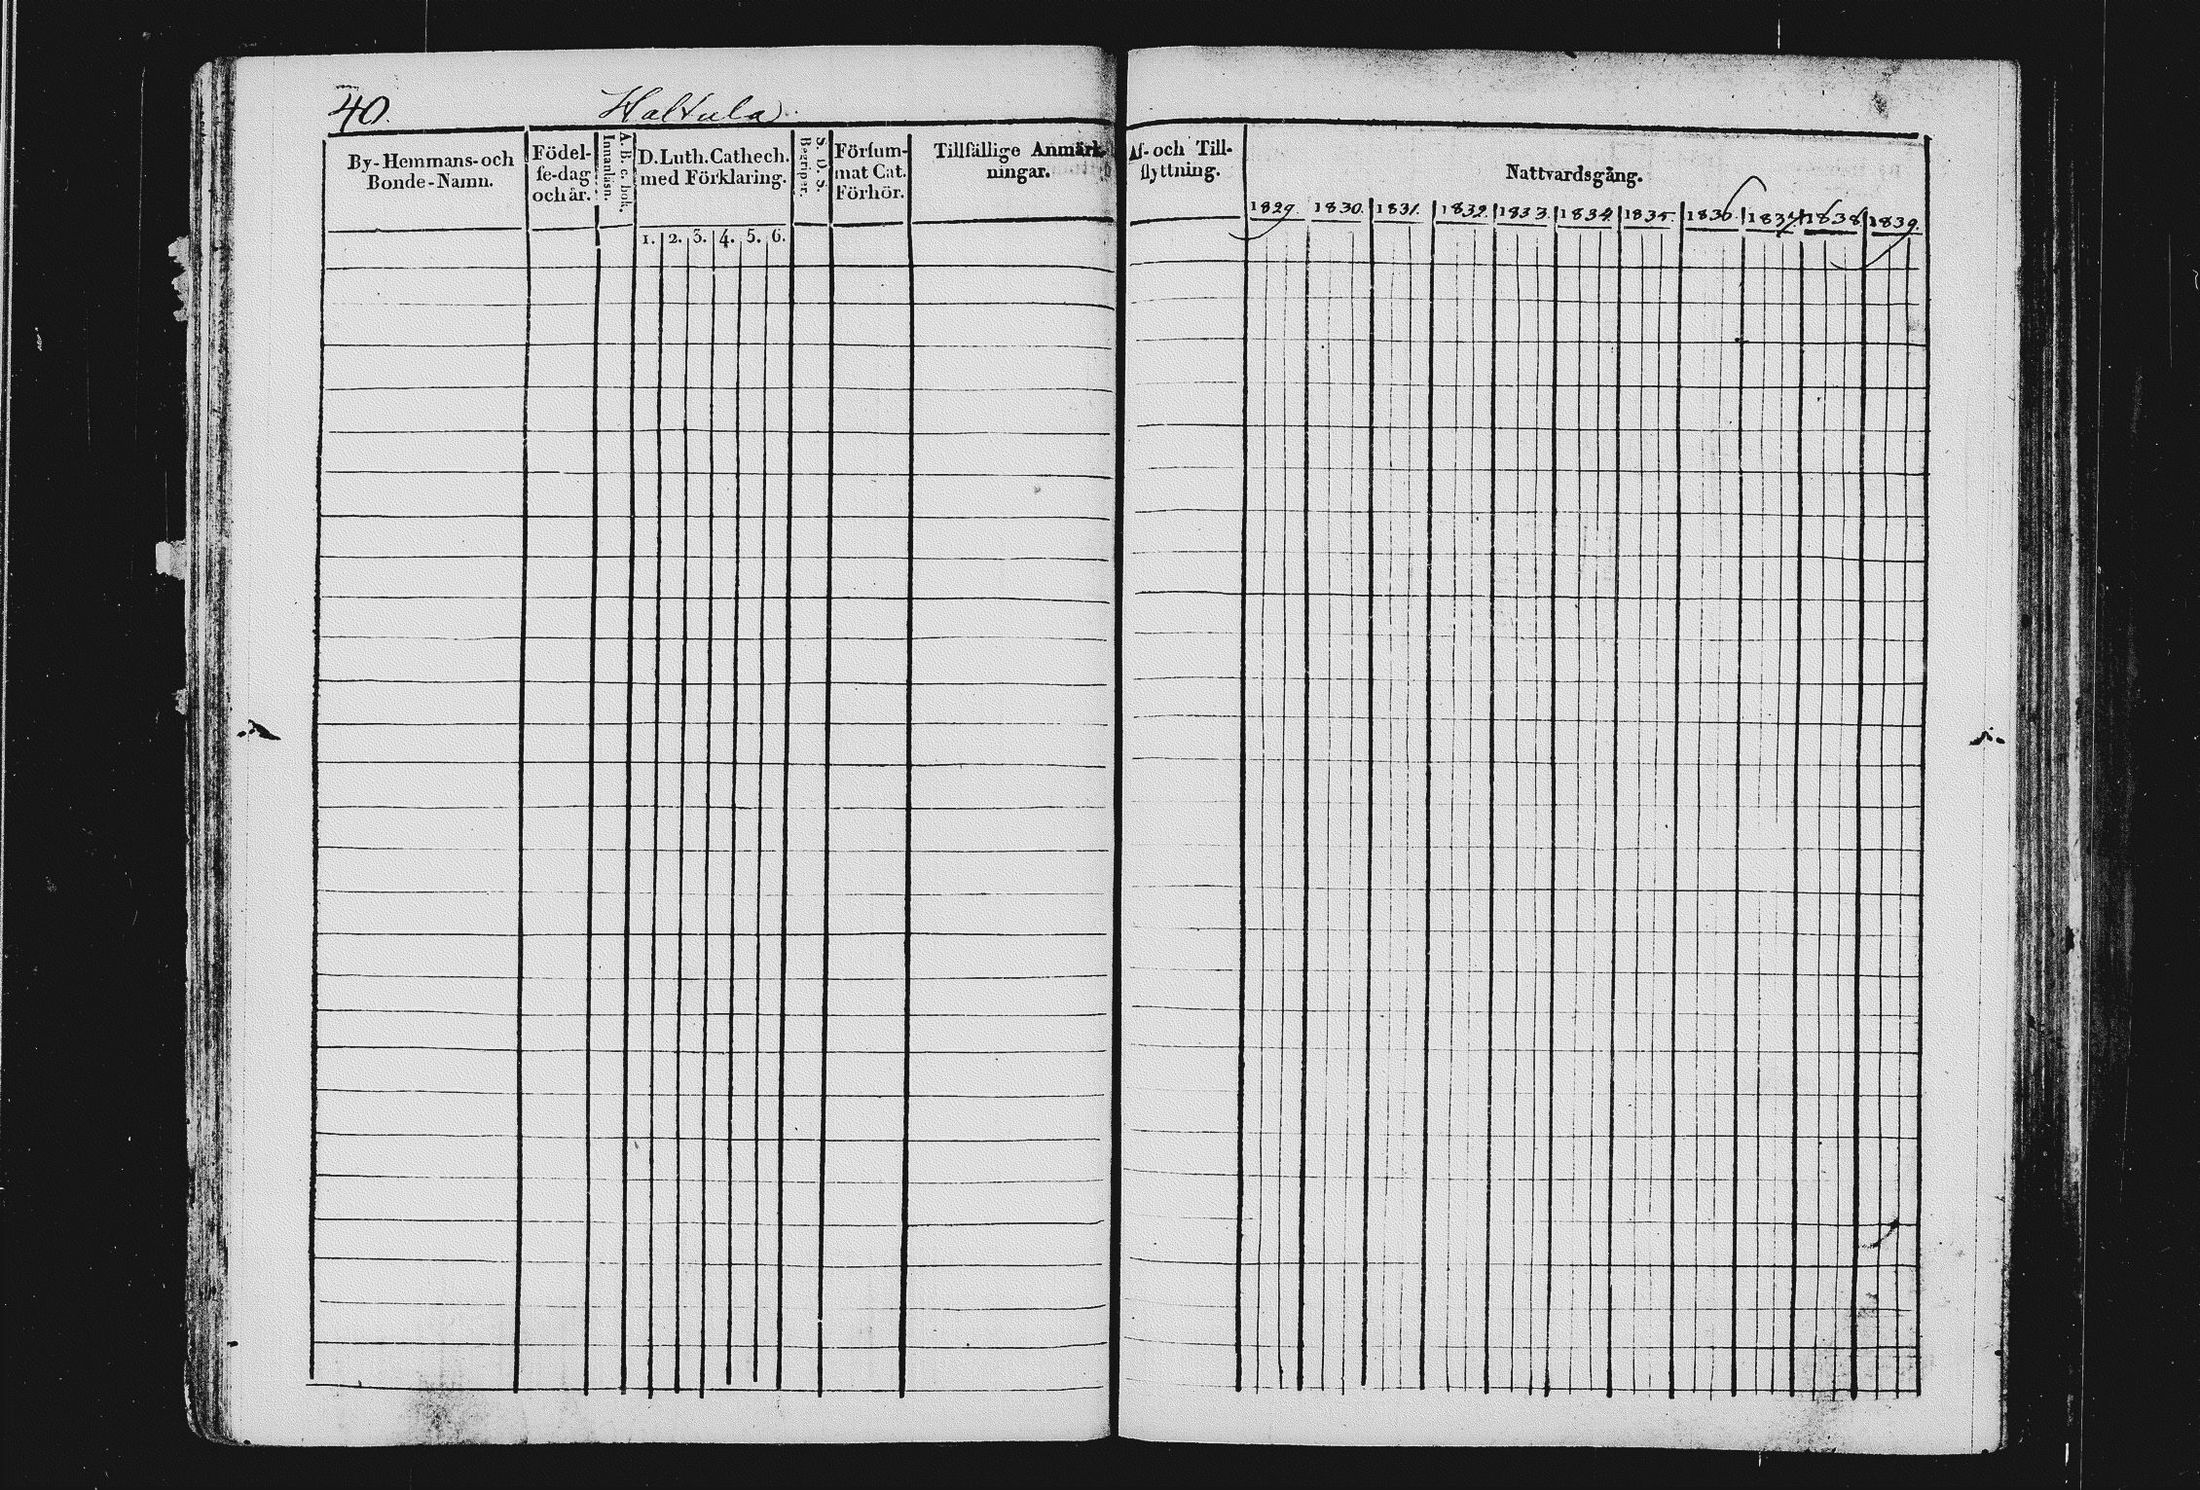 40. Haltula.
By-Hemmans-och
Bonde-Namn.
Födel-
se-dag
och år.
A. B. c. bok.
Innanläsn.
D. Luth. Cathech.
med Förklaring.
1. 2. 3. 4. 5. 6.
S. D. S.
Begriper.
Försum-
mat Cat.
Förhör.
Tillfällige Anmärk-
ningar.
Af- och Till-
flyttning.
Nattvardsgång.
1829. 1830. 1831. 1832. 1833. 1834. 1835. 1836. 1837. 1838. 1839.